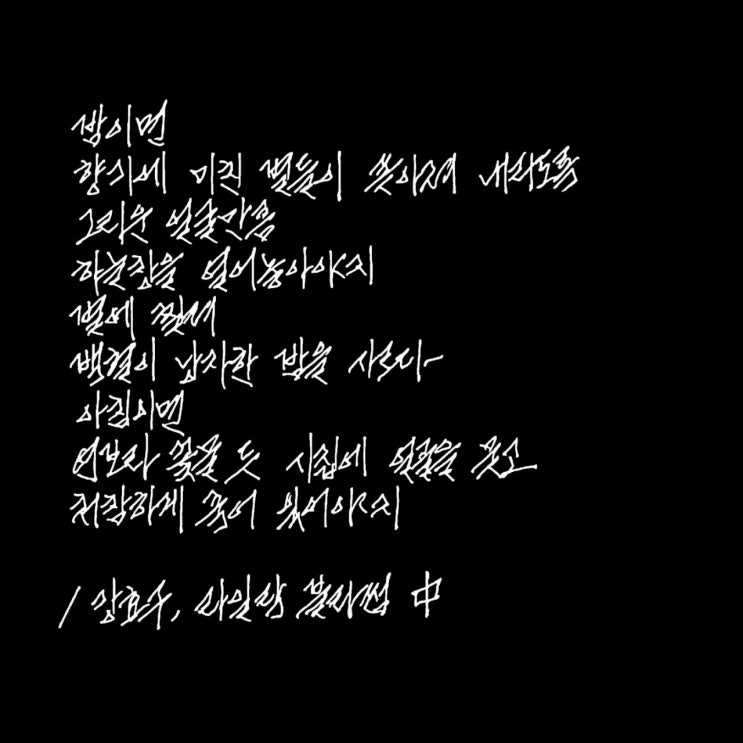 밤이면
향기에 미친 별들이 쏟아져 내리도록
그리운 얼굴만큼
하늘창을 열어놓아야지
별에 찢겨
백결이 낭자한 밤을 사르다
아침이면
연보라 꽃물 듯 시집에 얼굴을 묻고
처참하게 죽어 있어야지
/ 강효수, 라일락 블라썸 中